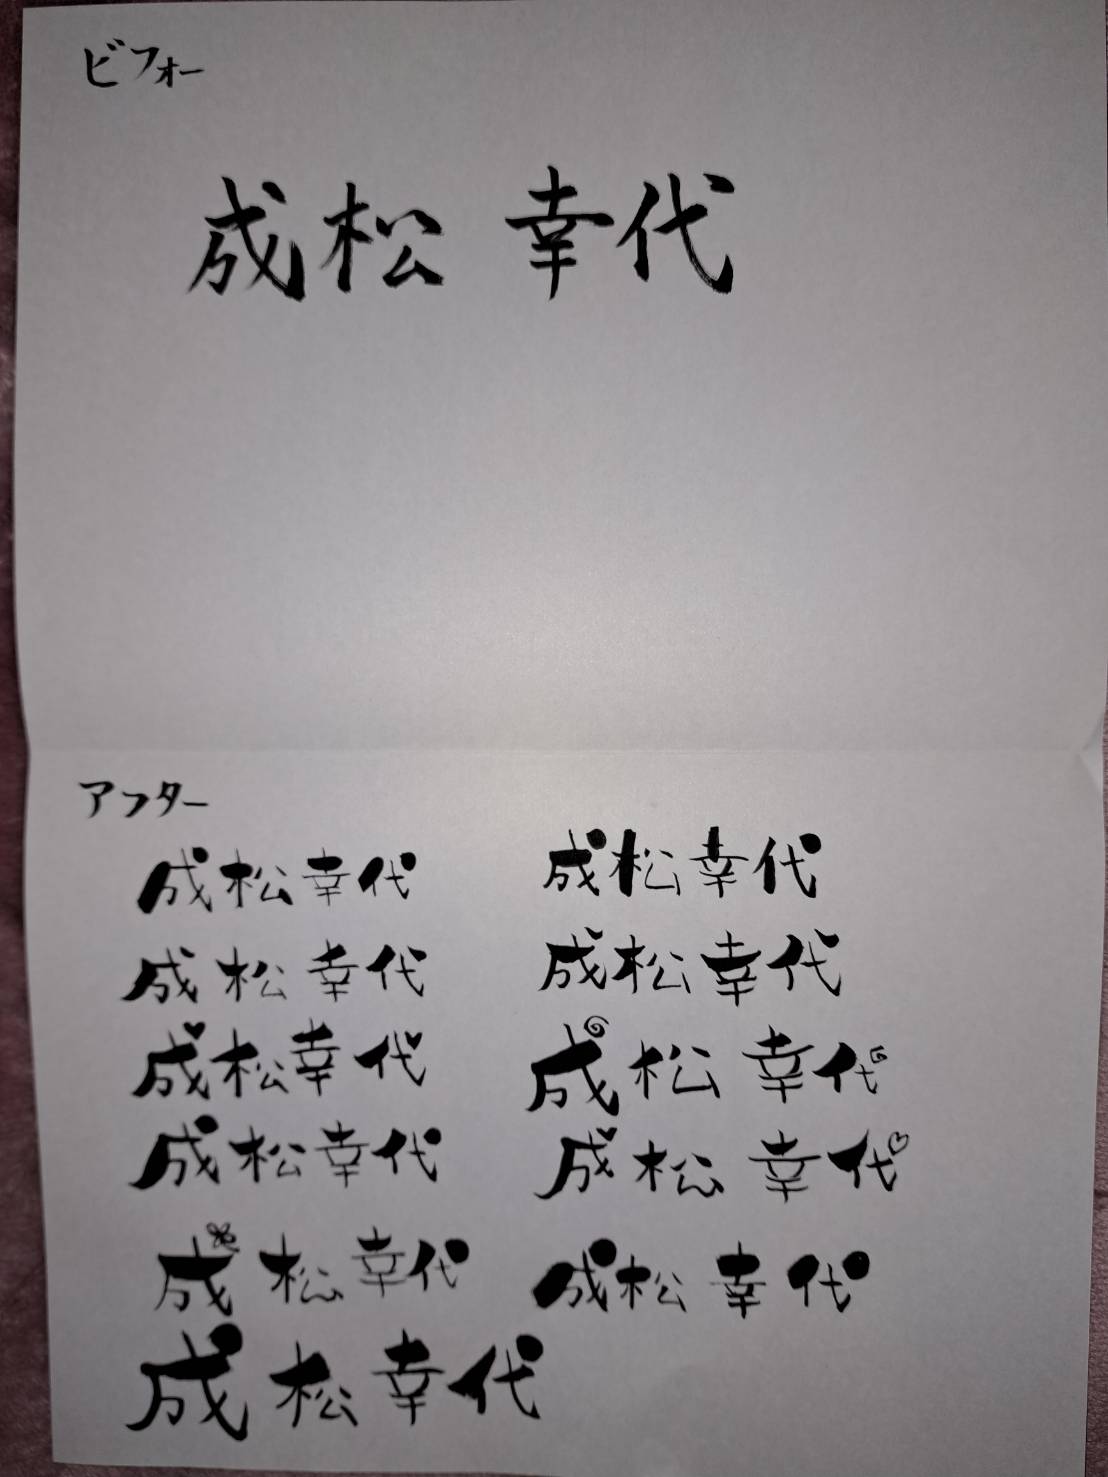 ビフォー
成松 幸代
アフター
成松幸代
成松幸代
成松幸代
成松幸代
成松幸代
成松幸代
成松幸代
成松幸代
成松幸代
成松幸代
成松幸代